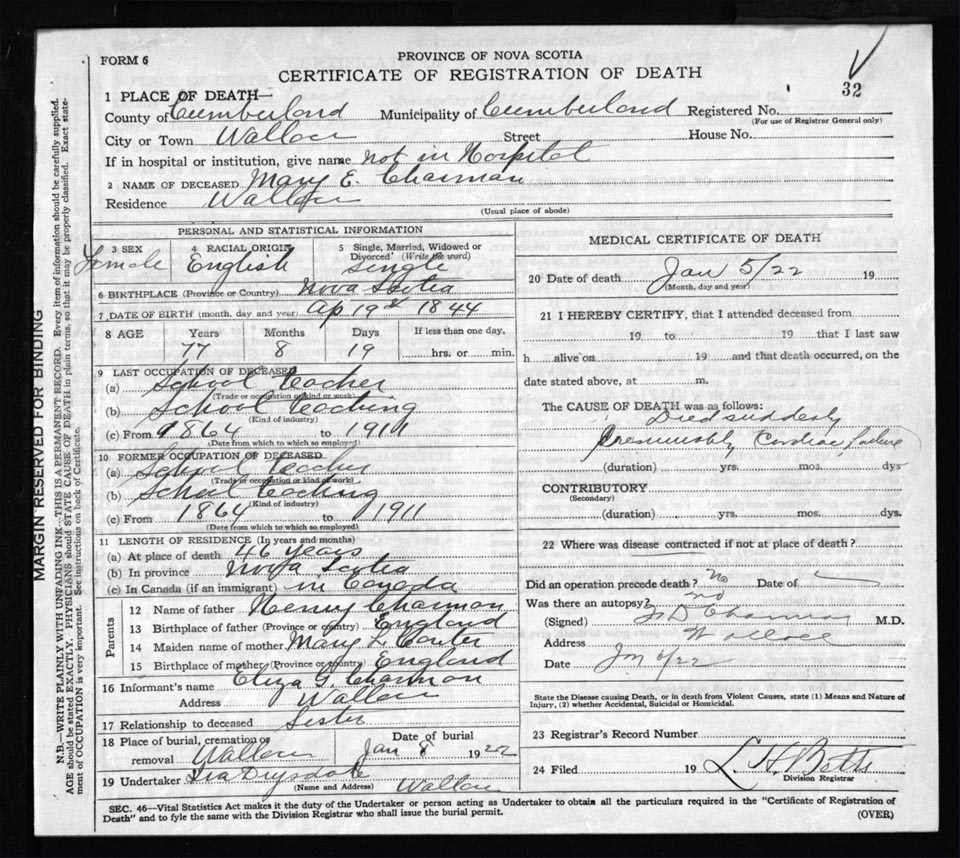 FORM 6
PROVINCE OF NOVA SCOTIA
CERTIFICATE OF REGISTRATION OF DEATH
32
1 PLACE OF DEATH—
County of Cumberland Municipality of Cumberland Registered No.
(For use of Registrar General only)
City or Town Wallace Street House No.
If in hospital or institution, give name not in Hospital
2 NAME OF DECEASED Mary E. Charman
Residence Wallace
(Usual place of abode)
PERSONAL AND STATISTICAL INFORMATION
3 SEX 4 RACIAL ORIGIN 5 Single, Married, Widowed or Divorced (Write the word)
Female English Single
6 BIRTHPLACE (Province or Country) Nova Scotia
7 DATE OF BIRTH (month, day and year) Ap 19 1844
8 AGE Years Months Days If less than one day,
77 8 19 hrs. or min.
9 LAST OCCUPATION OF DECEASED
(a) School teacher
(Trade or occupation or kind of work)
(b) School teaching
(Kind of industry)
(c) From 1864 to 1911
(Date from which to which so employed)
10 FORMER OCCUPATION OF DECEASED
(a) School teacher
(Trade or occupation or kind of work)
(b) School teaching
(Kind of industry)
(c) From 1864 to 1911
(Date from which to which so employed)
11 LENGTH OF RESIDENCE (In years and months)
(a) At place of death 46 years
(b) In province Nova Scotia
(c) In Canada (if an immigrant) in Canada
Parents
12 Name of father Henry Charman
13 Birthplace of father (Province or country) England
14 Maiden name of mother Mary L. Carter
15 Birthplace of mother (Province or country) England
16 Informant's name Eliza G. Charman
Address Wallace
17 Relationship to deceased Sister
18 Place of burial, cremation or removal Wallace Date of burial Jan 8 1922
19 Undertaker Ira Drysdale Wallace
(Name and Address)
MEDICAL CERTIFICATE OF DEATH
20 Date of death Jan 5/22 19
(Month, day and year)
21 I HEREBY CERTIFY, that I attended deceased from
19 to 19 that I last saw
h alive on 19 and that death occurred, on the
date stated above, at m.
The CAUSE OF DEATH was as follows:
Died suddenly
Presumably Cardiac failure
(duration) yrs. mos. dys
CONTRIBUTORY
(Secondary)
(duration) yrs. mos. dys.
22 Where was disease contracted if not at place of death?
Did an operation precede death? No Date of
Was there an autopsy? no
(Signed) M.D.
Address Wallace
Date Jan 6/22
State the Disease causing Death, or in death from Violent Causes, state (1) Means and Nature of
Injury, (2) whether Accidental, Suicidal or Homicidal.
23 Registrar's Record Number
24 Filed 19 L. H. Betts
Division Registrar
SEC. 46—Vital Statistics Act makes it the duty of the Undertaker or person acting as Undertaker to obtain all the particulars required in the "Certificate of Registration of
Death" and to fyle the same with the Division Registrar who shall issue the burial permit.
(OVER)
MARGIN RESERVED FOR BINDING
N.B.—WRITE PLAINLY WITH UNFADING INK—THIS IS A PERMANENT RECORD. Every item of information should be carefully supplied.
AGE should be stated EXACTLY. PHYSICIANS should STATE CAUSE OF DEATH in plain terms, so that it may be properly classified. Exact state-
ment of OCCUPATION is very important. See instructions on back of Certificate.